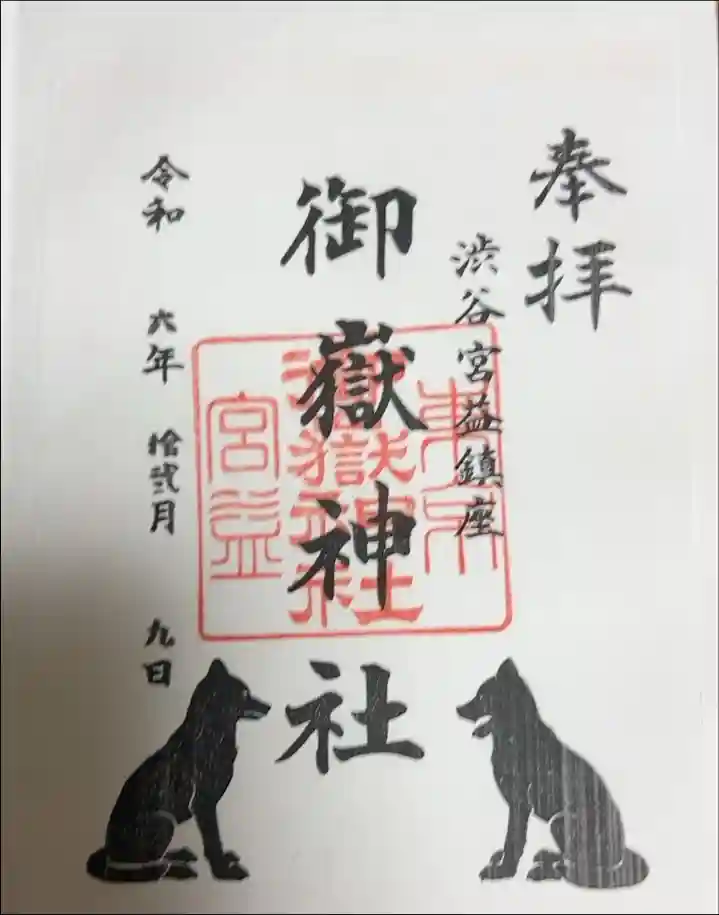 奉拝
渋谷宮益鎮座
御嶽神社
令和 六年 拾弐月 九日
東京
御嶽神社
宮益